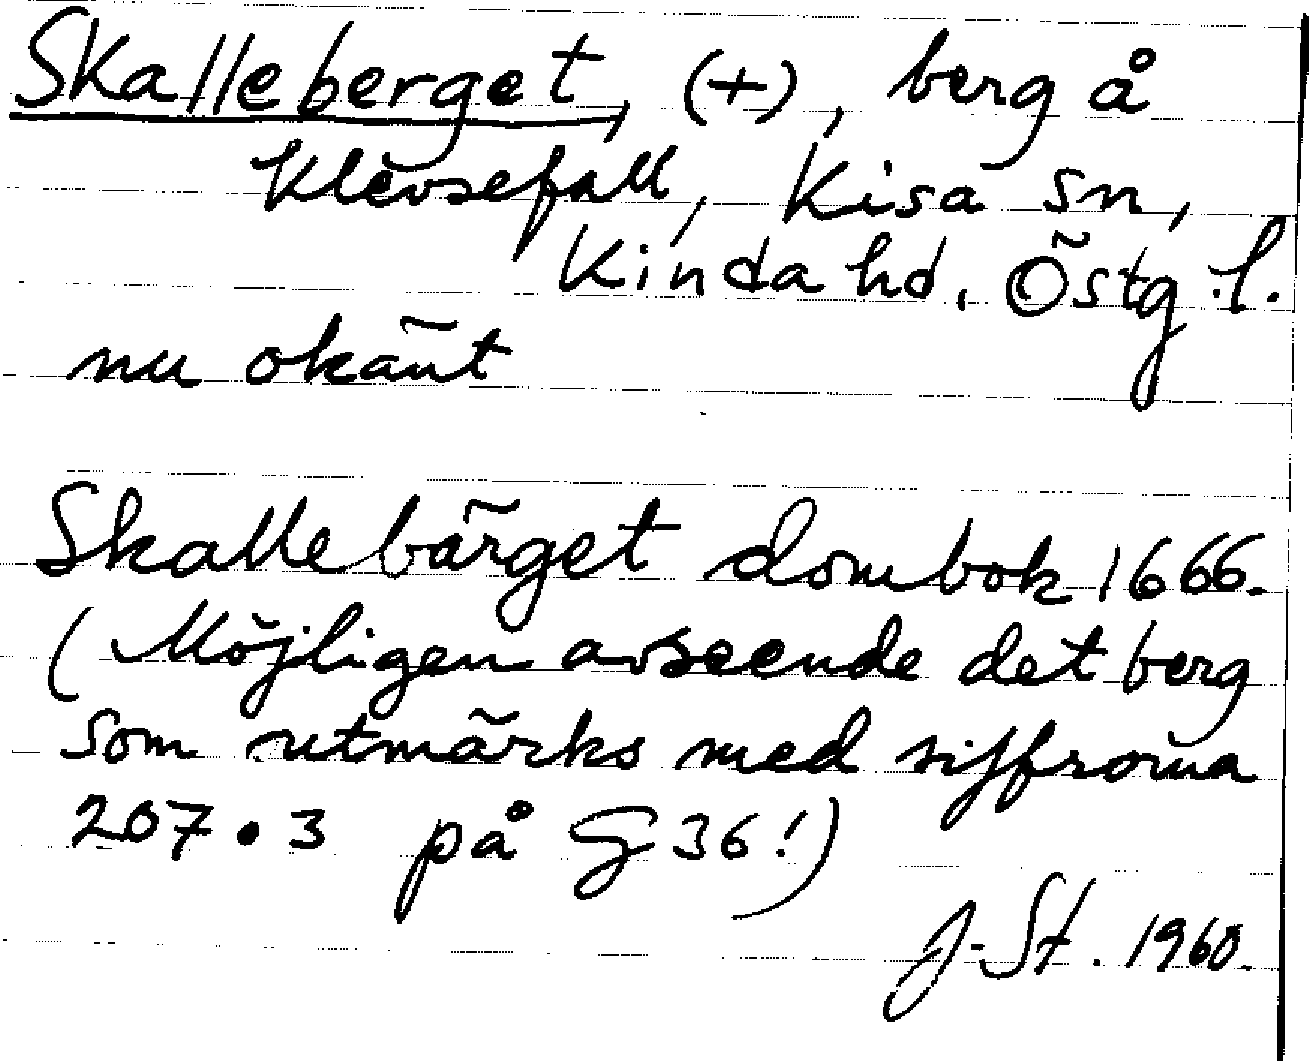 Skalleberget, (+), berg å
Klevsefall, Kisa sn,
Kinda hd, Östg.l.
nu okänt
Skallebärget dombok 1666.
(Möjligen avseende det berg
som utmärks med siffrorna
207.3 på G 36!)
J. St. 1960.